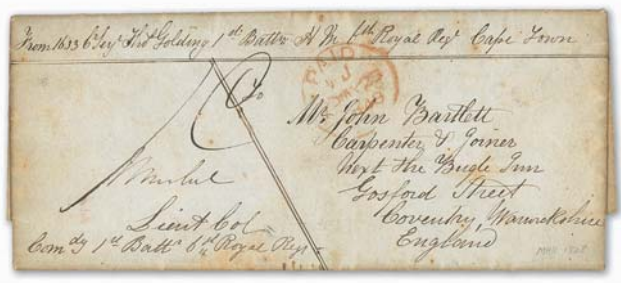 From 1633 Cr Serjt Thos Golding 1st Battn H M 6th Royal Regt Cape Town
PAID
To
Mr John Bartlett
Carpenter & Joiner
Next the Bugle Inn
Gosford Street
Coventry, Warwickshire
England
Lieut Col
Comdg 1st Battn 6th Royal Regt